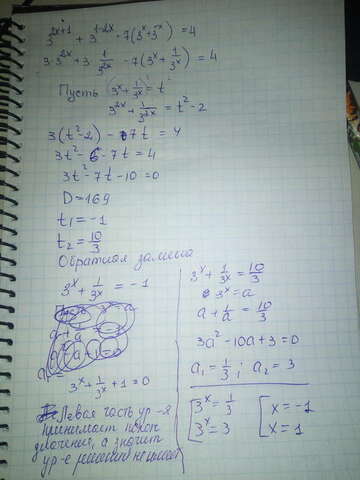 3^{2x+1} + 3^{1-2x} - 7(3^x+3^{-x}) = 4
3·3^{2x} + 3·\frac{1}{3^{2x}} - 7(3^x + \frac{1}{3^x}) = 4
Пусть (3^x + \frac{1}{3^x}) = t
3^{2x} + \frac{1}{3^{2x}} = t^2 - 2
3(t^2-2) - 7t = 4
3t^2 - 6 - 7t = 4
3t^2 - 7t - 10 = 0
D = 169
t_1 = -1
t_2 = \frac{10}{3}
Обратная замена
3^x + \frac{1}{3^x} = -1
3^x + \frac{1}{3^x} + 1 = 0
Левая часть ур-я
принимает полож
значения, а значит
ур-е решений не имеет
3^x + \frac{1}{3^x} = \frac{10}{3}
3^x = a
a + \frac{1}{a} = \frac{10}{3}
3a^2 - 10a + 3 = 0
a_1 = \frac{1}{3}; a_2 = 3
[3^x = \frac{1}{3} [x = -1
3^x = 3 x = 1